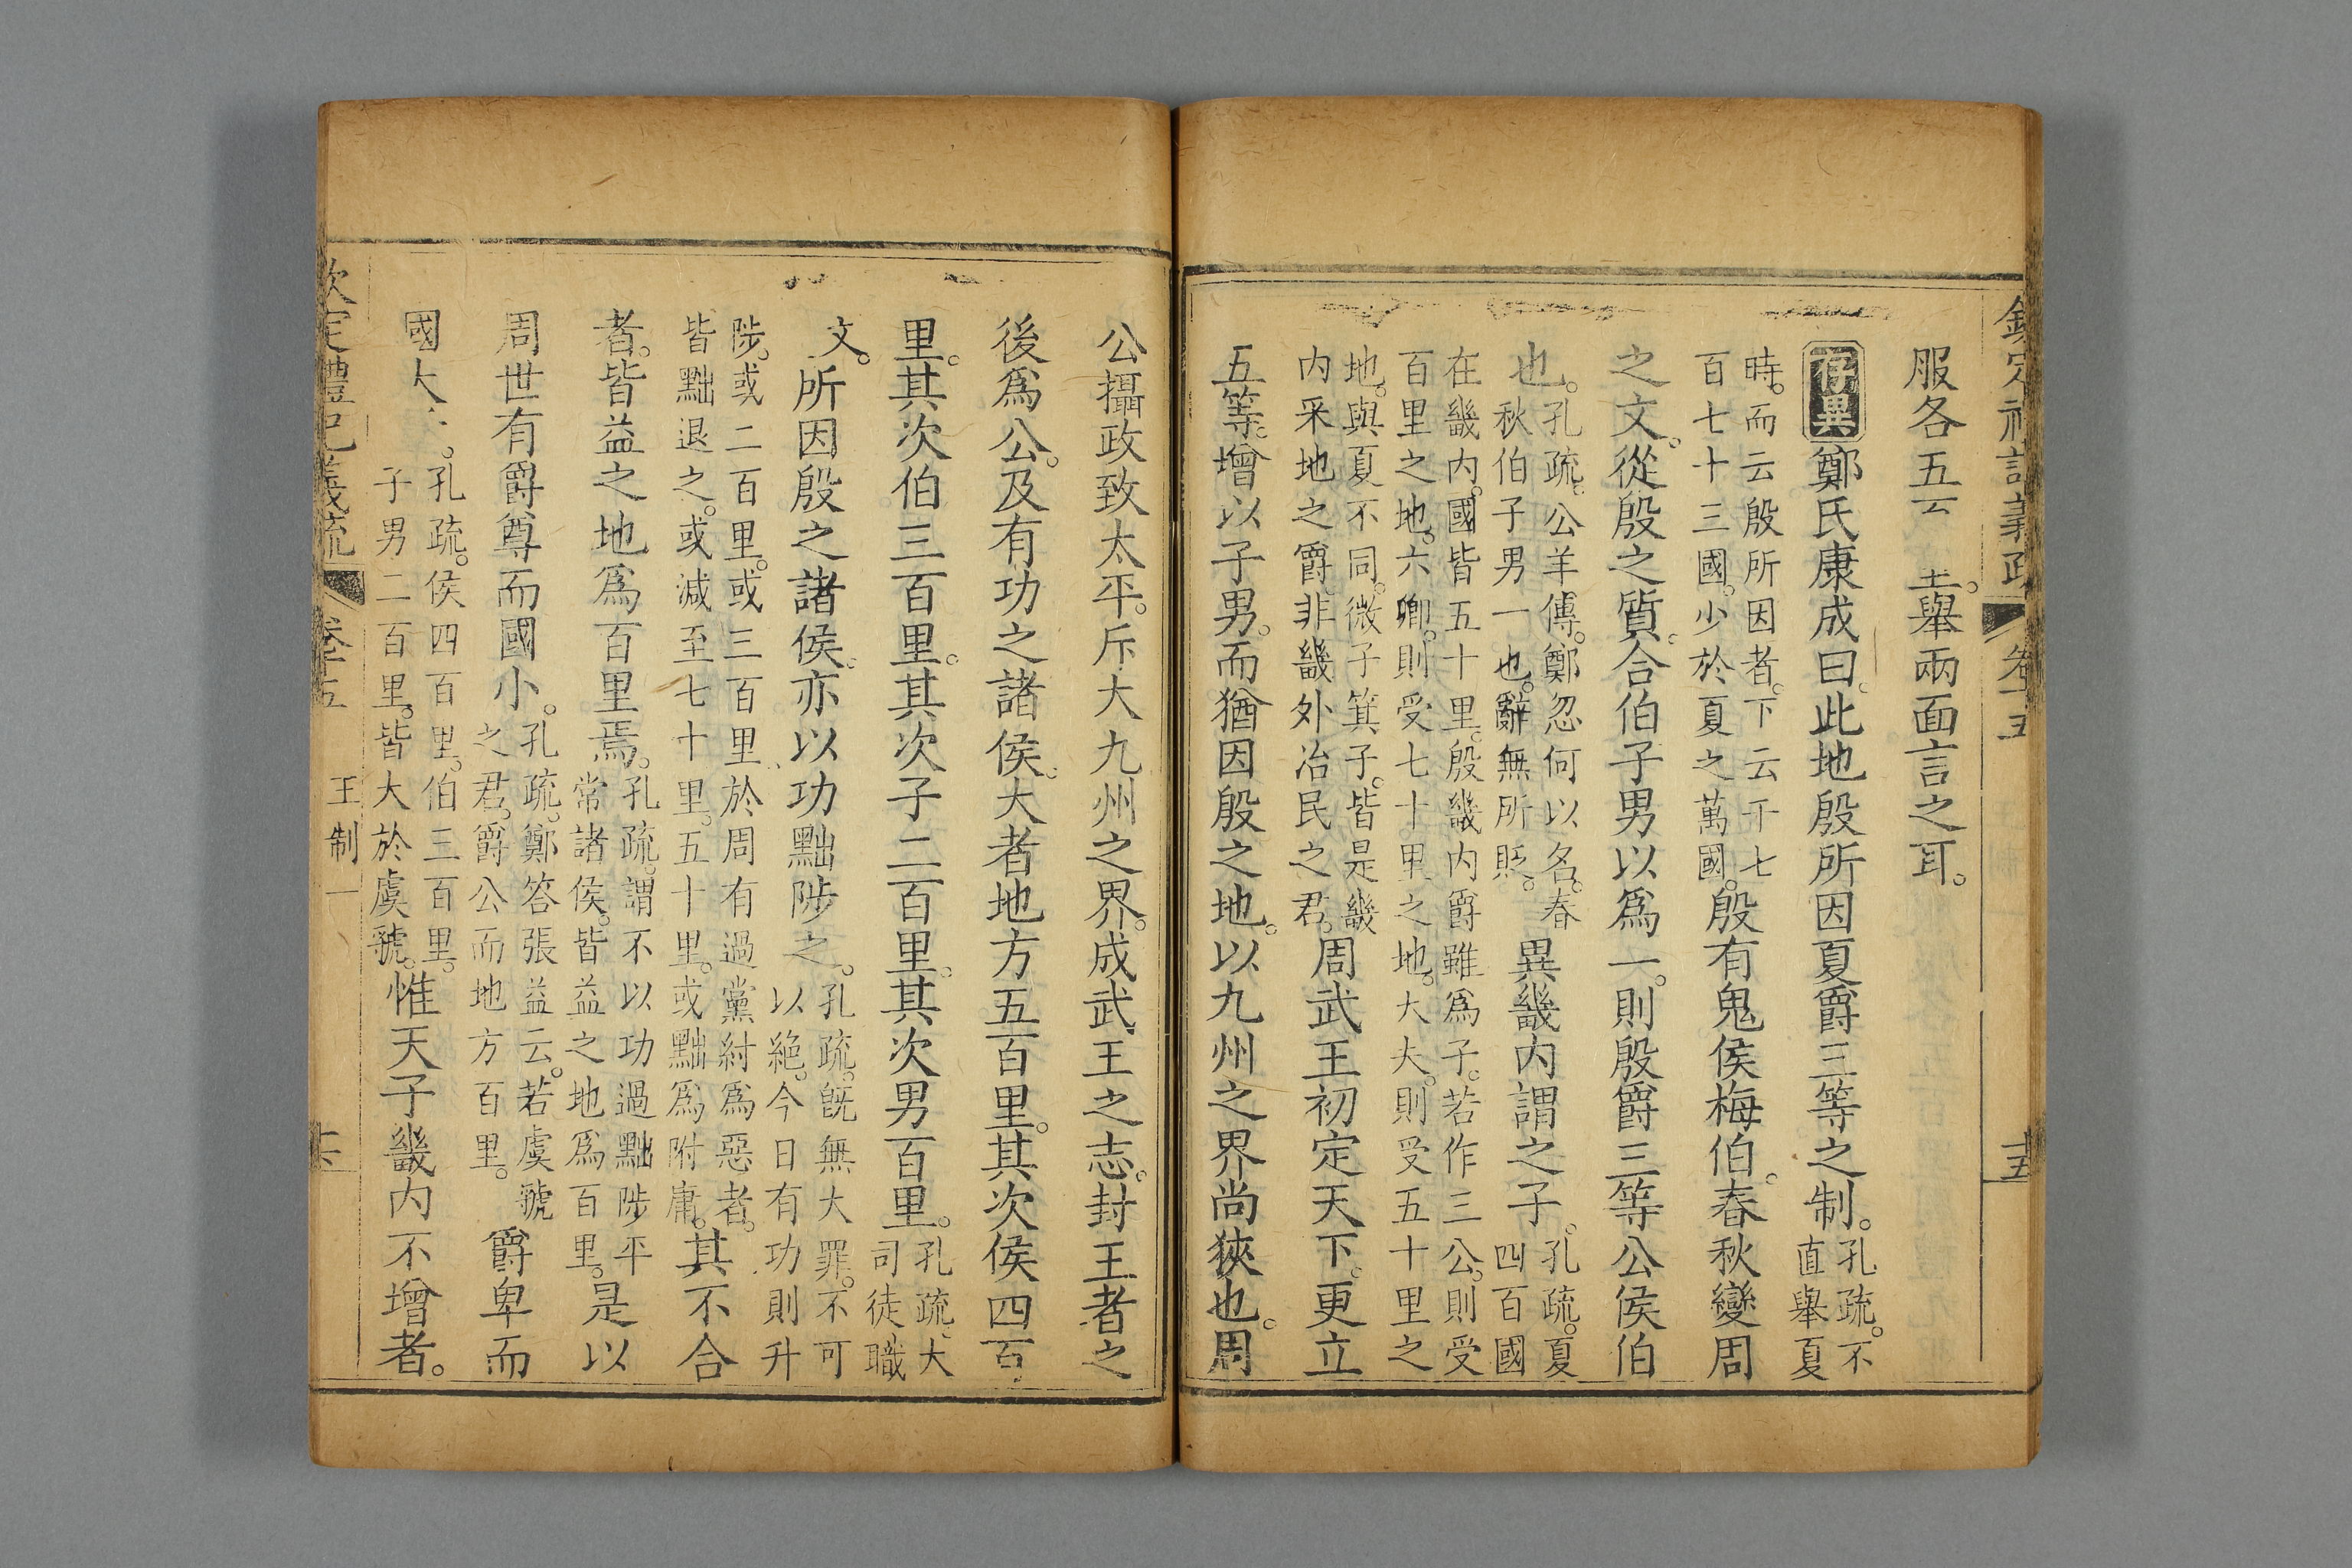 服各五
舉兩面言之耳。
存異 鄭氏康成曰。此地殷所因夏爵三等之制。孔疏。不直舉夏
時。而云殷所因者。下云千七百七十三國。少於夏之萬國。殷有鬼侯梅伯。春秋變周
之文。從殷之質。合伯子男以爲一。則殷爵三等公侯伯
也。孔疏。公羊傳。鄭忽何以名。春秋伯子男一也。辭無所貶。異畿內謂之子。孔疏。夏四百國
在畿內。國皆五十里。殷畿內爵雖爲子。若作三公。則受百里之地。六卿。則受七十里之地。大夫。則受五十里之
地。與夏不同。微子箕子。皆是畿內采地之爵。非畿外冶民之君。周武王初定天下。更立
五等。增以子男。而猶因殷之地。以九州之界尚狹也。周
卷十五
十五
公攝政致太平。斥大九州之界。成武王之志。封王者之
後爲公。及有功之諸侯。大者地方五百里。其次侯四百
里。其次伯三百里。其次子二百里。其次男百里。孔疏。大司徒職
文。所因殷之諸侯。亦以功黜陟之。孔疏。旣無大罪。不可以絕。今日有功則升
陟。或二百里。或三百里。於周有過黨紂爲惡者。皆黜退之。或減至七十里。五十里。或黜爲附庸。其不合
者。皆益之地爲百里焉。孔疏。謂不以功過黜陟平常諸侯。皆益之地爲百里。是以
周世有爵尊而國小。孔疏。鄭答張益云。若虞虢之君。爵公而地方百里。爵卑而
國大。孔疏。侯四百里。伯三百里。子男二百里。皆大於虞虢。惟天子畿內不增者。
欽定禮記義疏 卷十五 王制一